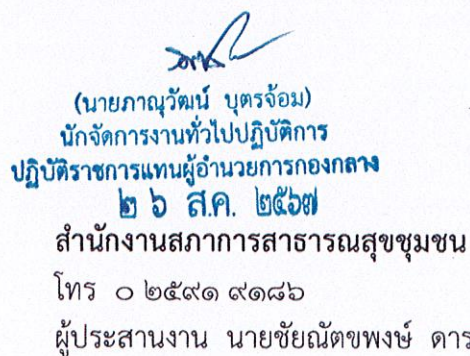 (นายภาณุวัฒน์ บุตรจ้อม)
นักจัดการงานทั่วไปปฏิบัติการ
ปฏิบัติราชการแทนผู้อำนวยการกองกลาง
๒ ๖ ส.ค. ๒๕๖๗
สำนักงานสภาการสาธารณสุขชุมชน
โทร ๐ ๒๕๙๑ ๙๑๘๖
ผู้ประสานงาน นายชัยณัตขพงษ์ ดาร